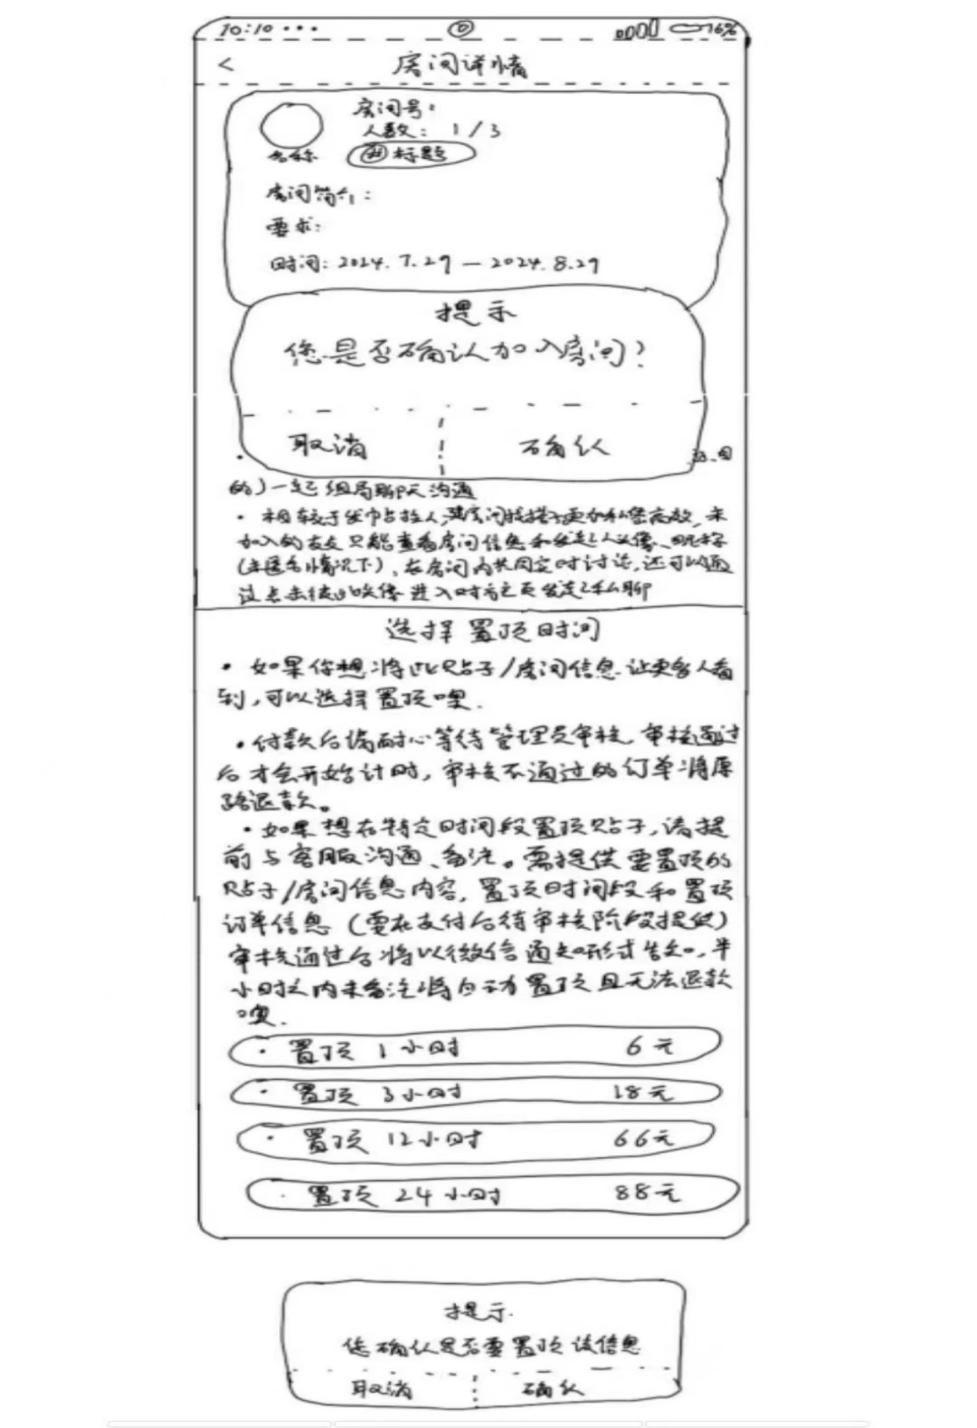 10:10 ••• 76%
< 房间详情
房间号:
人数: 1/3
名称 # 标题
房间简介:
要求:
时间: 2024.7.29 — 2024.8.29
提示
您是否确认加入房间?
取消 确认
的)一起组局聊天沟通
• 相较于发帖子拉人,建房间找搭子更加私密高效,未
加入的友友只能查看房间信息和发起人头像、昵称
(非匿名情况下)、在房间内共同实时讨论,还可以通
过点击彼此头像进入对方主页发起私聊
选择置顶时间
• 如果你想将此贴子/房间信息让更多人看
到,可以选择置顶噢.
• 付款后请耐心等待管理员审核,审核通过
后才会开始计时,审核不通过的订单将原
路退款。
• 如果想在特定时间段置顶贴子,请提
前与客服沟通、备注。需提供要置顶的
贴子/房间信息内容,置顶时间段和置顶
订单信息(需在支付后待审核阶段提供)
审核通过后将以微信通知形式告知,半
小时之内未备注将自动置顶且无法退款
噢.
• 置顶 1小时 6元
• 置顶 3小时 18元
• 置顶 12小时 66元
• 置顶 24小时 88元
提示
您确认是否要置顶该信息
取消 确认